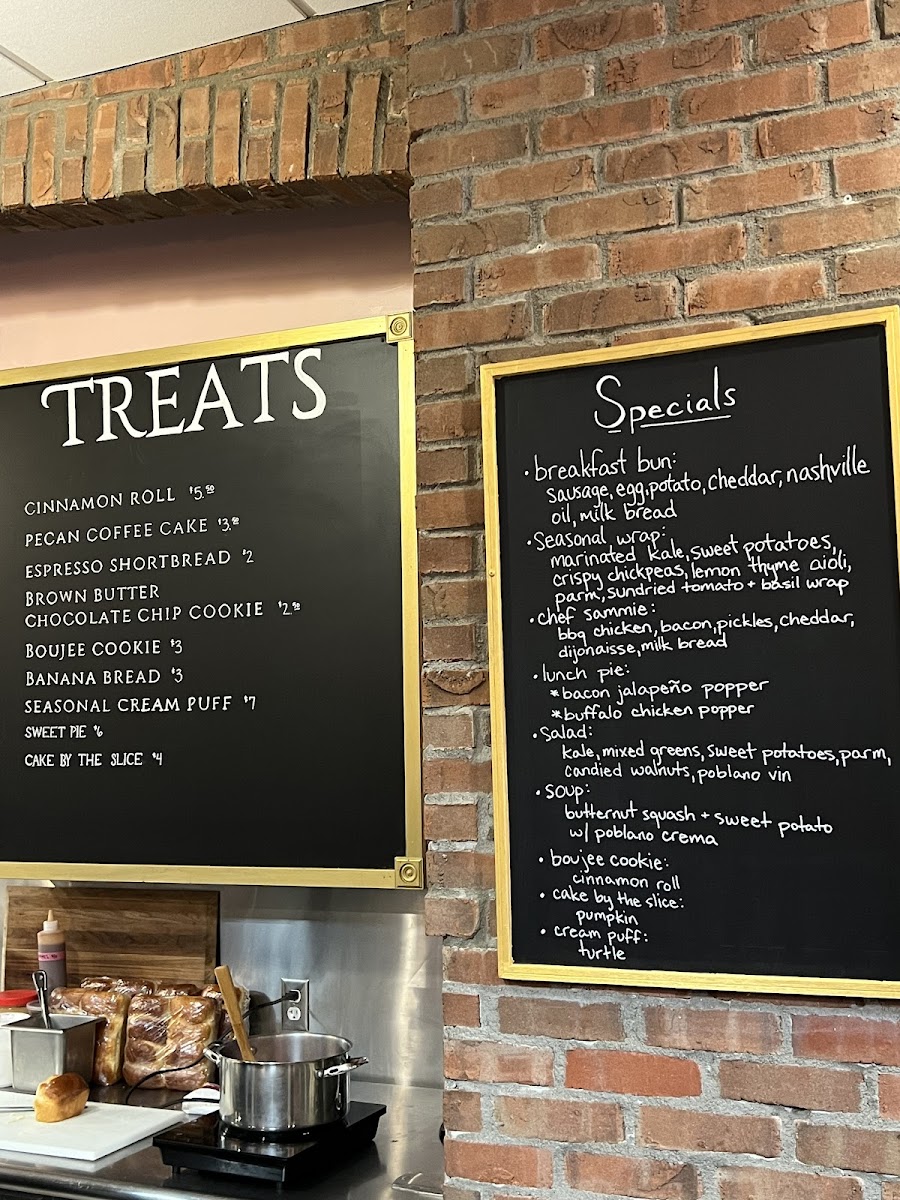 TREATS
CINNAMON ROLL $5.50
PECAN COFFEE CAKE
ESPRESSO SHORTBREAD $2
BROWN BUTTER
CHOCOLATE CHIP COOKIE $2.50
BOUJEE COOKIE $3
BANANA BREAD $3
SEASONAL CREAM PUFF $7
SWEET PIE $6
CAKE BY THE SLICE $4
Specials
• breakfast bun:
sausage, egg, potato, cheddar, nashville
oil, milk bread
• Seasonal wrap:
marinated kale, sweet potatoes,
crispy chickpeas, lemon thyme aioli,
parm, sundried tomato + basil wrap
• chef sammie:
bbq chicken, bacon, pickles, cheddar,
dijonaisse, milk bread
• lunch pie:
* bacon jalapeño popper
* buffalo chicken popper
• Salad:
kale, mixed greens, sweet potatoes, parm,
candied walnuts, poblano vin
• soup:
butternut squash + sweet potato
w/ poblano crema
• boujee cookie:
cinnamon roll
• cake by the slice:
pumpkin
• cream puff:
turtle